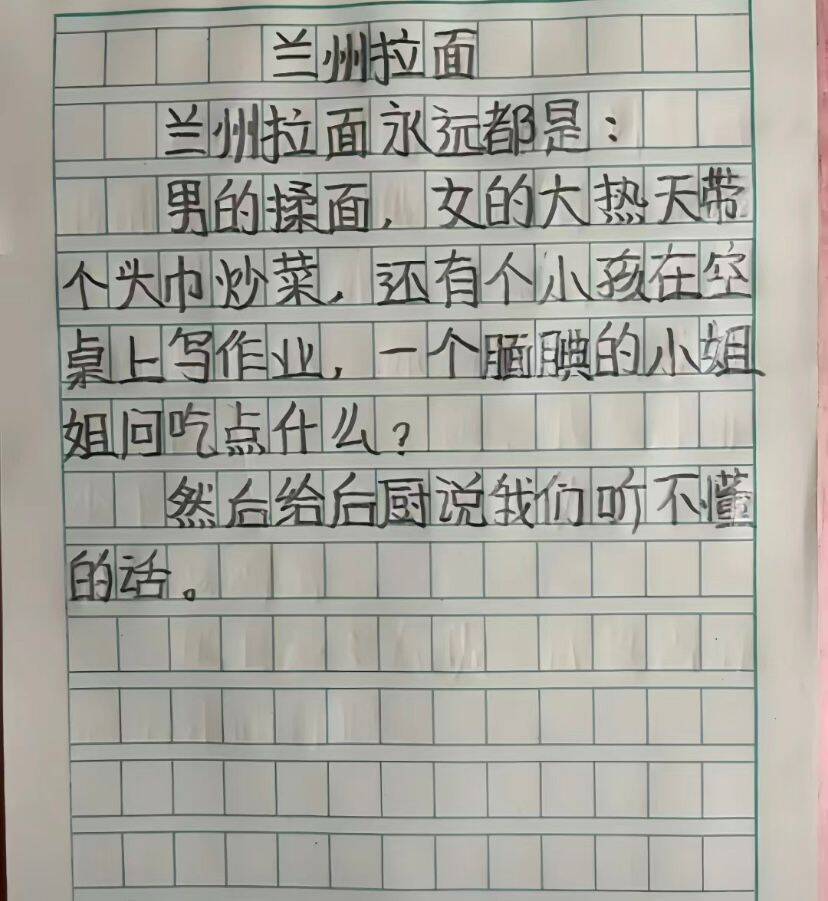 兰州拉面
兰州拉面永远都是：
男的揉面，女的大热天带
个头巾炒菜，还有个小孩在空
桌上写作业，一个腼腆的小姐
姐问吃点什么？
然后给后厨说我们听不懂
的话。